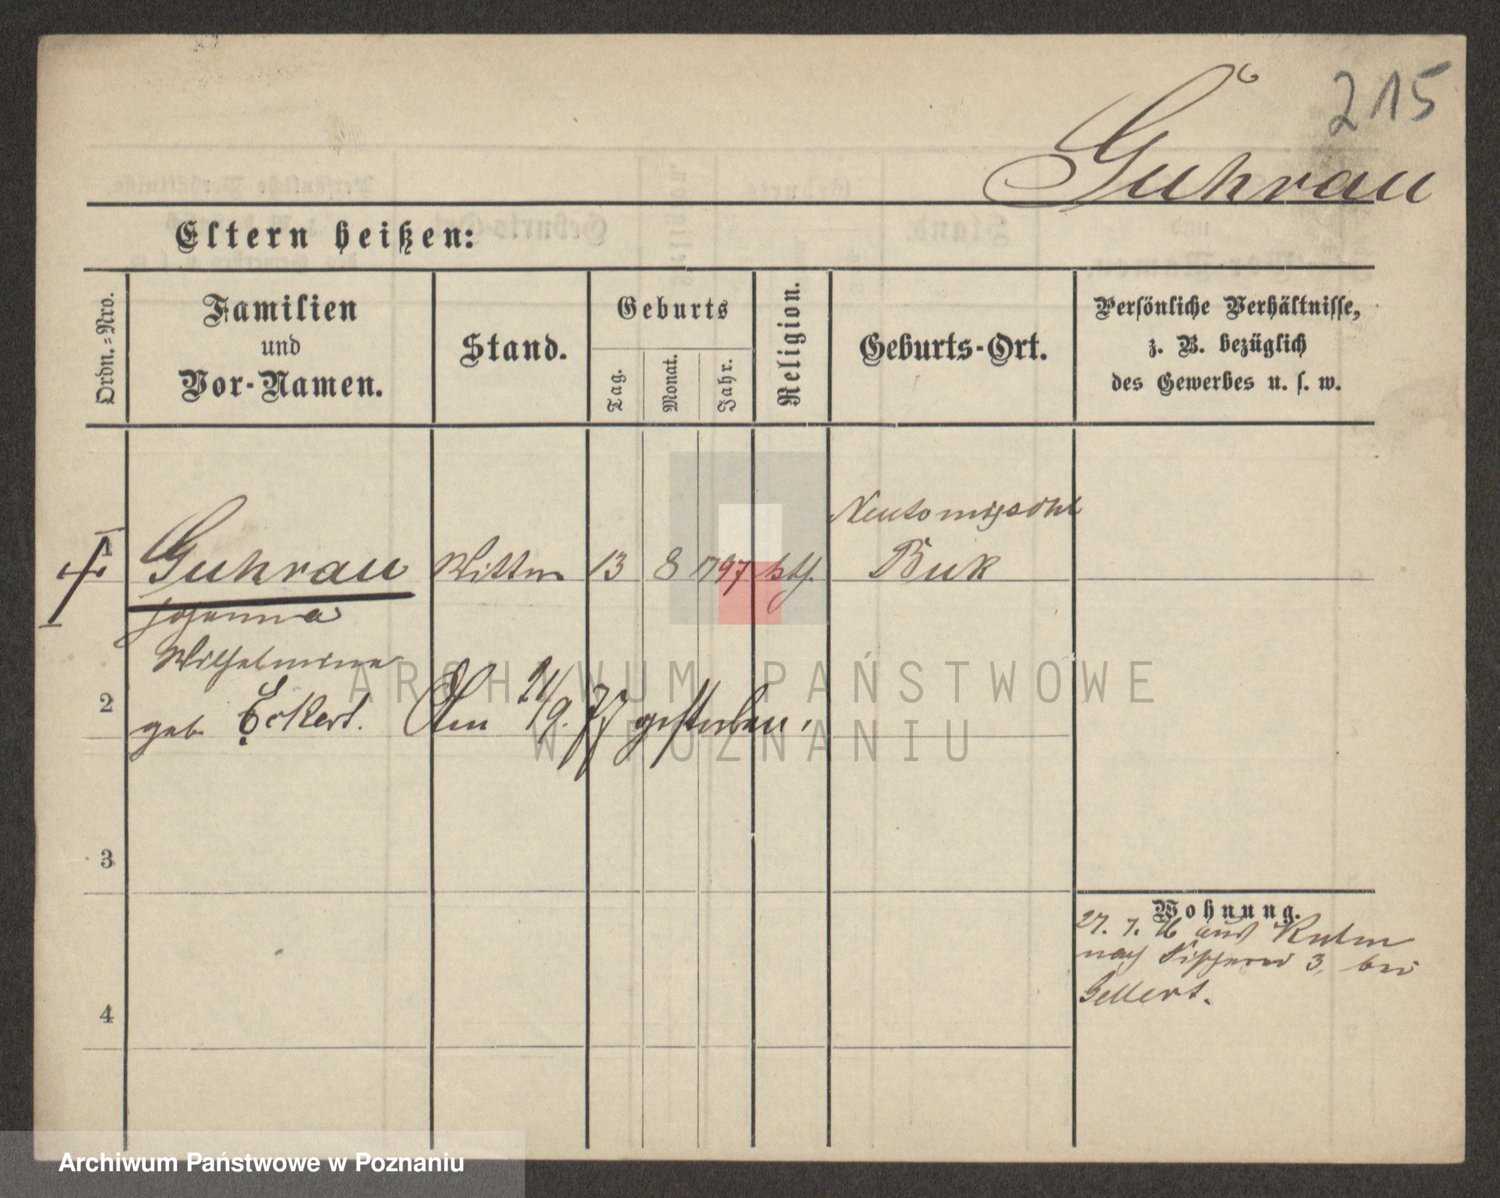 215
Guhrau
Eltern heißen:
Ordn.-Nro.
Familien
und
Vor-Namen.
Stand.
Geburts
Tag.
Monat.
Jahr.
Religion.
Geburts-Ort.
Persönliche Verhältnisse,
z. B. bezüglich
des Gewerbes u. s. w.
Neutomischl
1 Guhrau Wittwe 13 8 797 kth. Buk
Johanna
Wilhelmine
2 geb Eckert. Am 21/9. 77 gestorben.
3
4
Wohnung.
27. 7. 76 aus Kulm
nach Fischerei 3, bei
Gellert.
ARCHIWUM PAŃSTWOWE
W POZNANIU
Archiwum Państwowe w Poznaniu